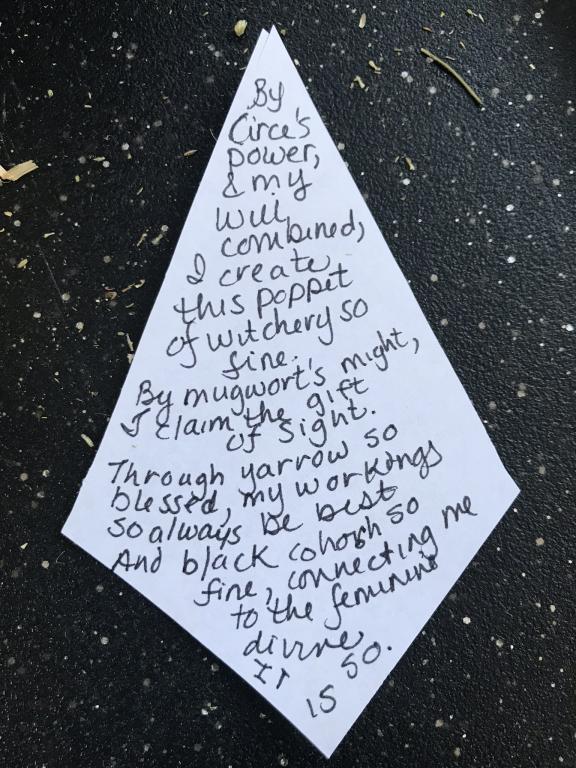 By
Circe's
power,
& my
will
combined,
I create
this poppet
of witchery so
fine.
By mugwort's might,
I claim the gift
of Sight.
Through yarrow so
blessed, my workings
so always be best
And black cohosh so
fine, connecting me
to the feminine
divine
It is so.